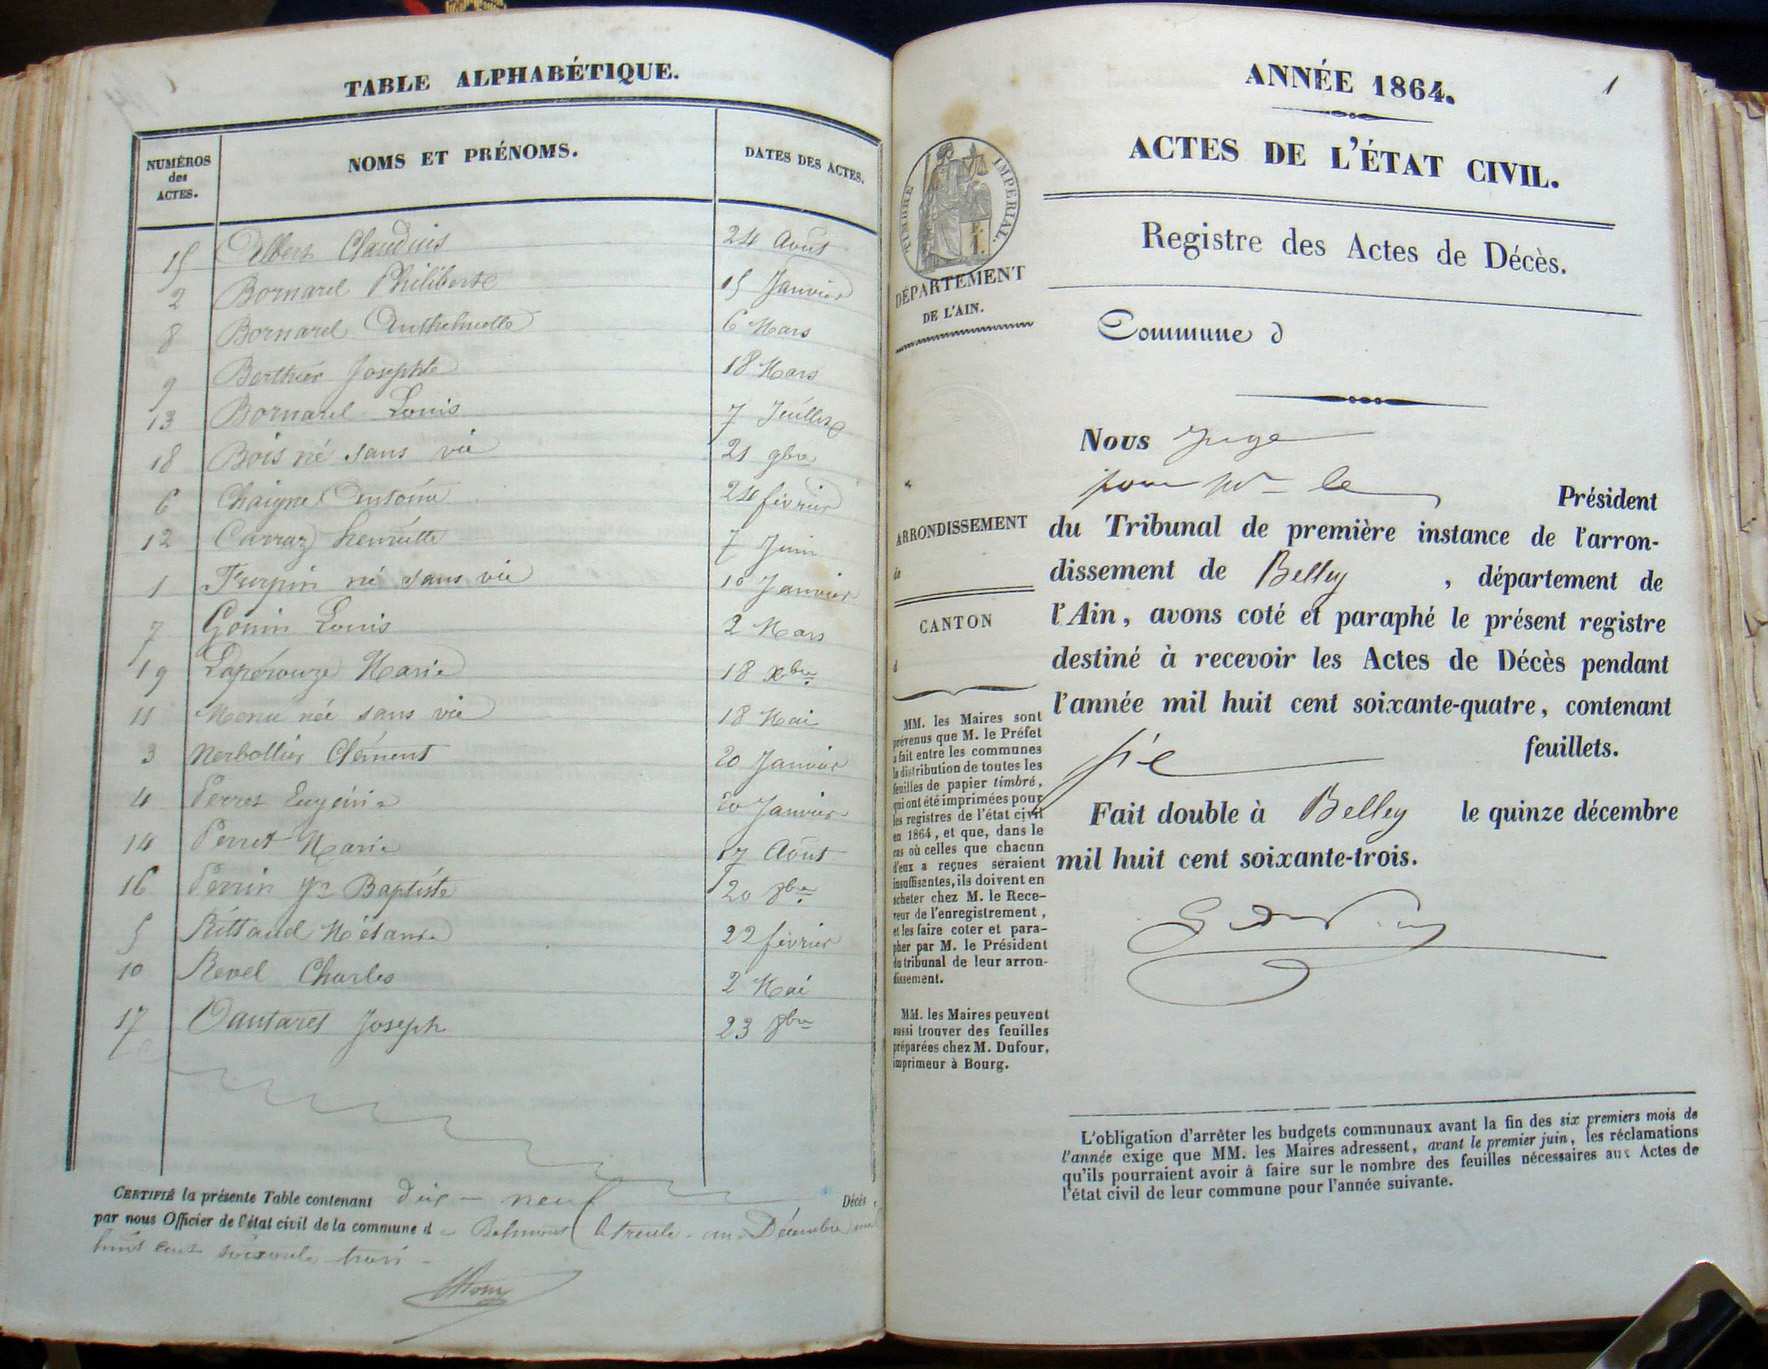 TABLE ALPHABÉTIQUE.
NUMÉROS des ACTES.
NOMS ET PRÉNOMS.
DATES DES ACTES.
15 Albert Claudius 24 Août
2 Bornarel Philiberte 15 Janvier
8 Bornarel Anthelmette 6 Mars
9 Berthier Josephte 18 Mars
13 Bornarel Louis 7 Juillet
18 Bois né sans vie 21 9bre
6 Chaignet Antoine 24 février
12 Carraz henriette 7 Juin
1 né sans vie 10 Janvier
7 Gonin Louis 2 Mars
19 Lapérouze Marie 18 xbre
11 Menu née sans vie 18 Mai
3 Nerbollier Clément 20 Janvier
4 Perret Eugénie 20 Janvier
14 Perret Marie 17 Août
16 Perrin Jn Baptiste 20 8bre
5 Rittaud Mélanie 22 février
10 Revel Charles 2 Mai
17 Vautaret Joseph 23 8bre
CERTIFIÉ la présente Table contenant dix-neuf Décès,
par nous Officier de l'état civil de la commune de Belmont le trente-un Décembre mil
huit cent soixante trois
ANNÉE 1864.
1
ACTES DE L'ÉTAT CIVIL.
Registre des Actes de Décès.
TIMBRE IMPÉRIAL.
DÉPARTEMENT
DE L'AIN.
ARRONDISSEMENT
de
CANTON
d
MM. les Maires sont
prévenus que M. le Préfet
a fait entre les communes
la distribution de toutes les
feuilles de papier timbré,
qui ont été imprimées pour
les registres de l'état civil
en 1864, et que, dans le
cas où celles que chacun
d'eux a reçues seraient
insuffisantes, ils doivent en
acheter chez M. le Rece-
veur de l'enregistrement,
et les faire coter et para-
pher par M. le Président
du tribunal de leur arron-
dissement.
MM. les Maires peuvent
aussi trouver des feuilles
préparées chez M. Dufour,
imprimeur à Bourg.
Commune d
Nous Juge
pour Mr le Président
du Tribunal de première instance de l'arron-
dissement de Belley, département de
l'Ain, avons coté et paraphé le présent registre
destiné à recevoir les Actes de Décès pendant
l'année mil huit cent soixante-quatre, contenant
feuillets.
Fait double à Belley le quinze décembre
mil huit cent soixante-trois.
L'obligation d'arrêter les budgets communaux avant la fin des six premiers mois de
l'année exige que MM. les Maires adressent, avant le premier juin, les réclamations
qu'ils pourraient avoir à faire sur le nombre des feuilles nécessaires aux Actes de
l'état civil de leur commune pour l'année suivante.